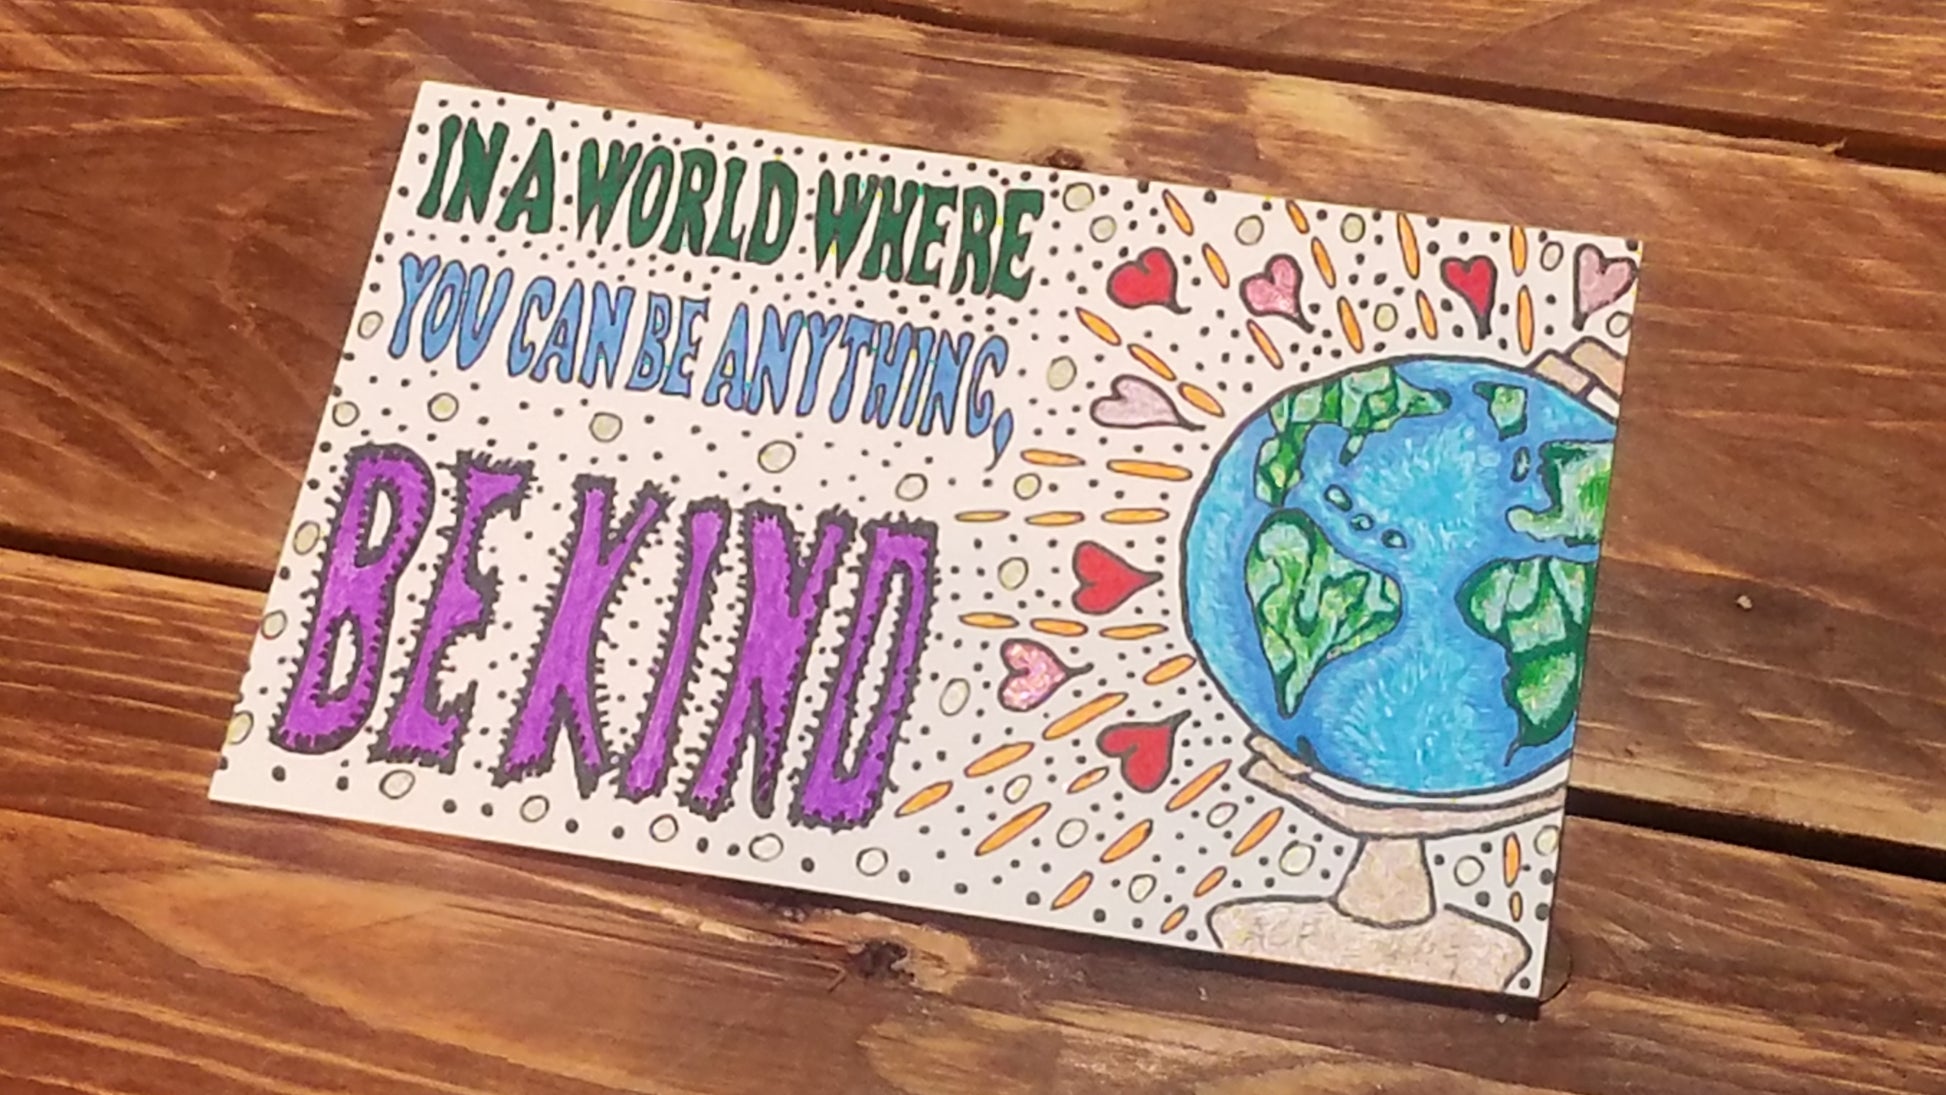 IN A WORLD WHERE
YOU CAN BE ANYTHING,
BE KIND